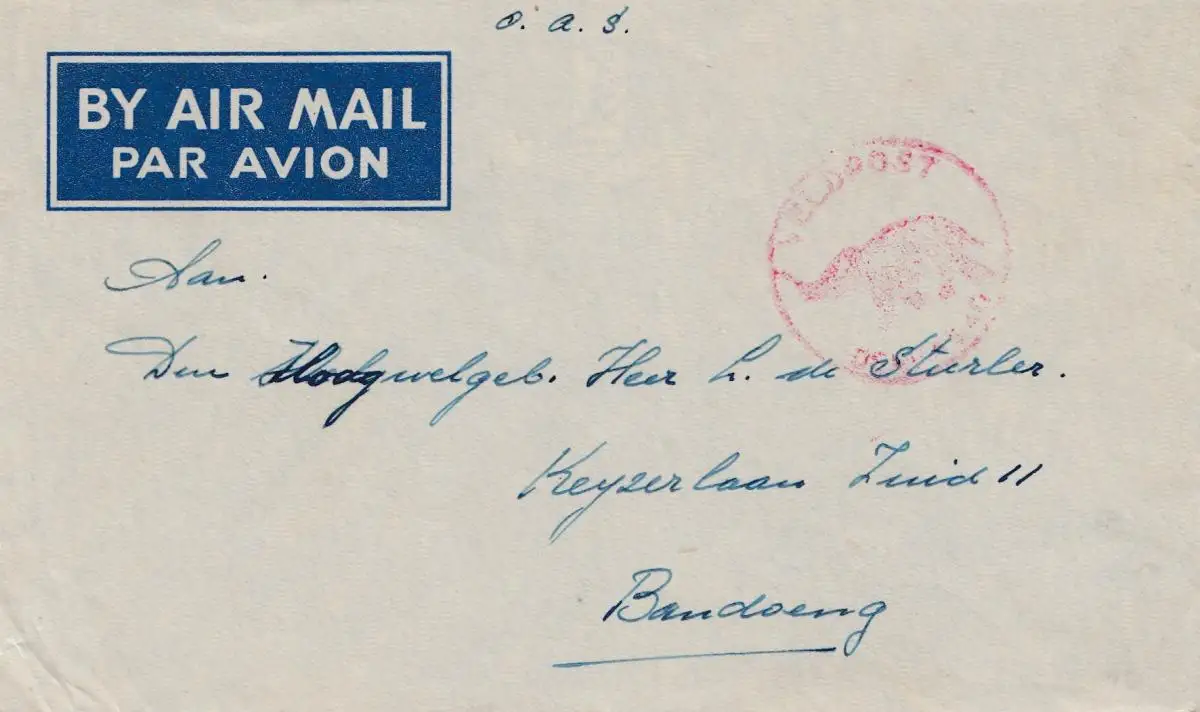 o. a. s.
BY AIR MAIL
PAR AVION
VELDPOST
Aan.
Den Hoogwelgeb. Heer L. de Sturler.
Keyzerlaan Zuid 11
Bandoeng